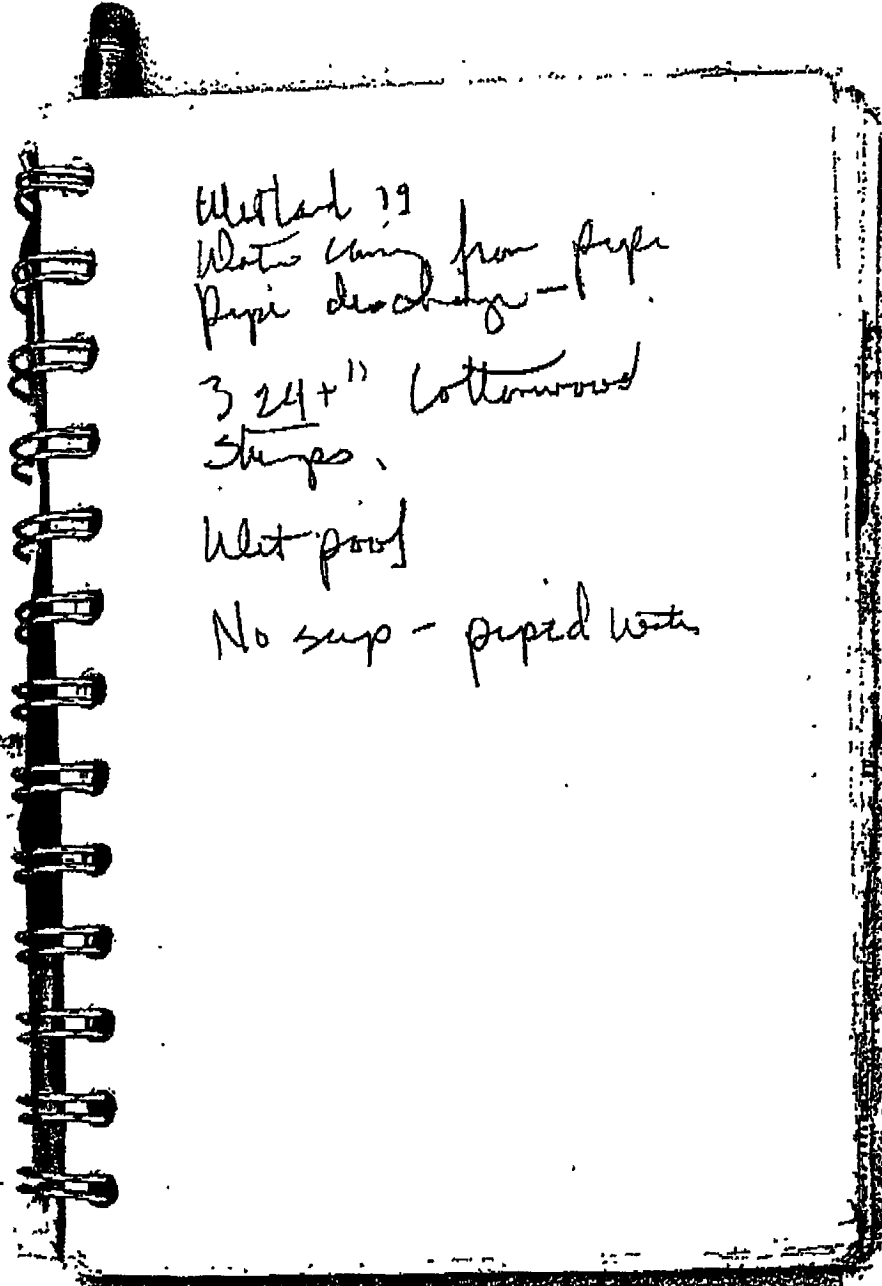 Wetland ?9
Water coming from pipe
Pipe discharge –
3 24+" Cottonwood
Stumps.
Wet pool
No seep – piped water